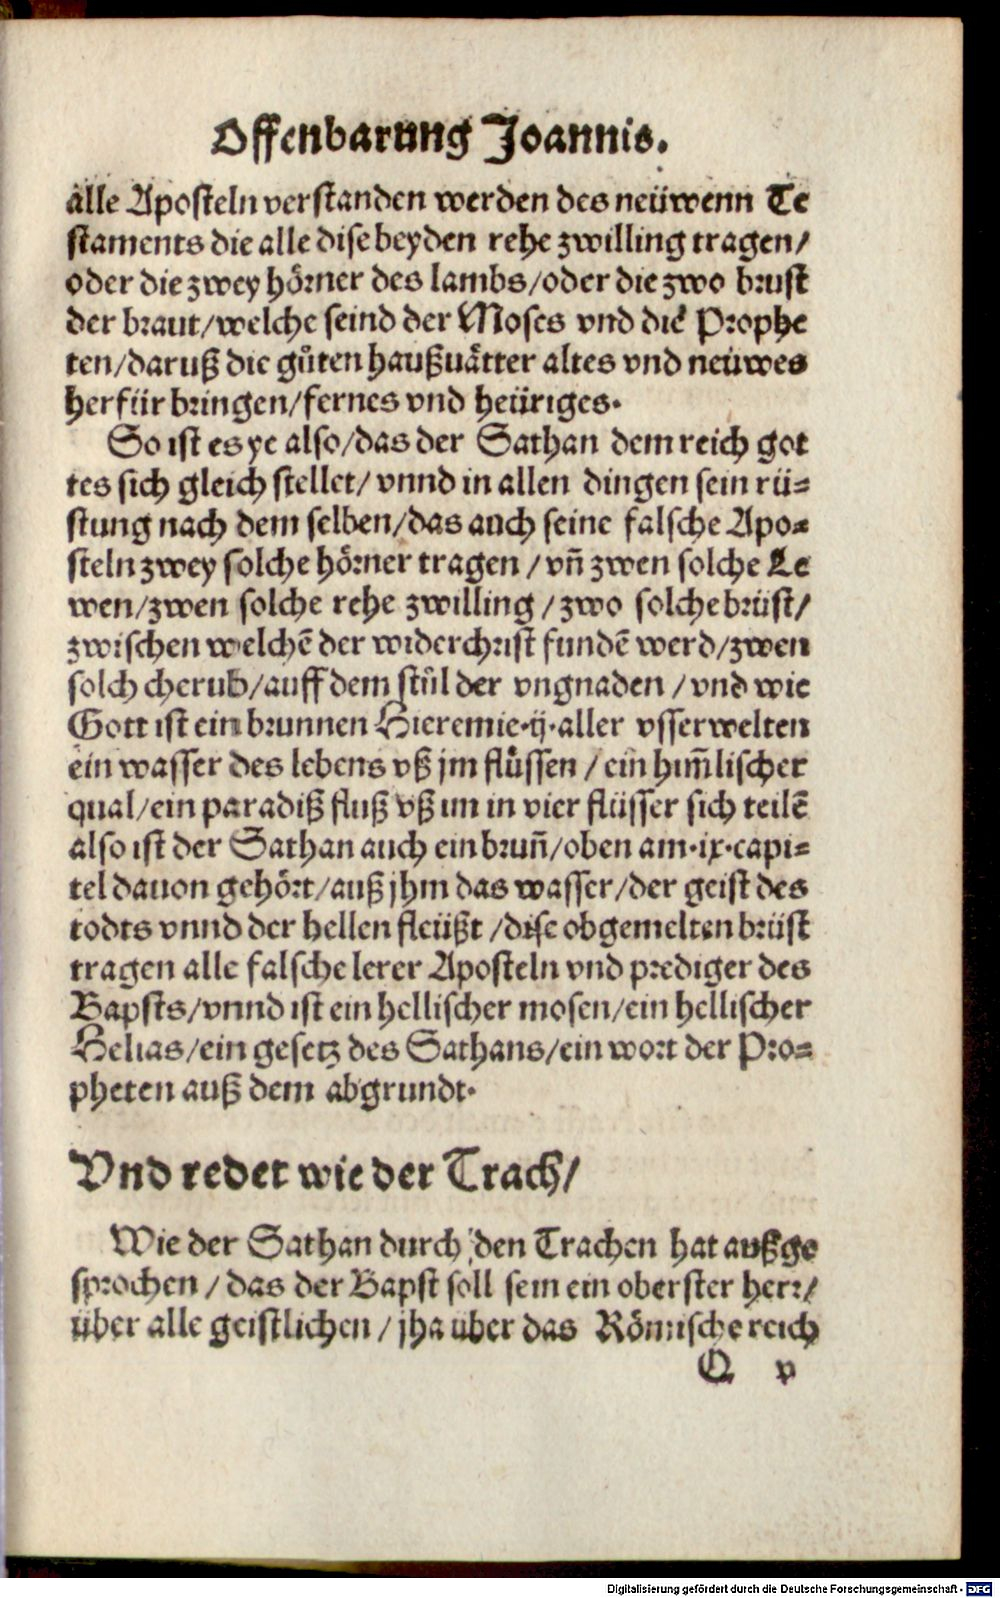 Offenbarung Joannis.
alle Aposteln verstanden werden des neüwenn Te
staments die alle dise beyden rehe zwilling tragen/
oder die zwey hörner des lambs/oder die zwo brust
der braut/welche seind der Moses vnd die Prophe
ten/daruß die gůten haußuätter altes vnd neüwes
herfür bringen/fernes vnd heüriges.
So ist es ye also/das der Sathan dem reich got
tes sich gleich stellet/ vnnd in allen dingen sein rü=
stung nach dem selben/das auch seine falsche Apo=
steln zwey solche hörner tragen / vñ zwen solche Le
wen/zwen solche rehe zwilling / zwo solche brüst/
zwischen welchẽ der widerchrist fundẽ werd/zwen
solch cherub/auff dem stůl der vngnaden / vnd wie
Gott ist ein brunnen Hieremie.ij.aller vsserwelten
ein wasser des lebens vß jm flüssen / ein him̃lischer
qual/ein paradiß fluß vß im in vier flüsser sich teilẽ
also ist der Sathan auch ein brun̄/oben am.ix.capi=
tel dauon gehört/auß jhm das wasser/der geist des
todts vnnd der hellen fleüßt /dise obgemelten brüst
tragen alle falsche lerer Aposteln vnd prediger des
Bapsts/vnnd ist ein hellischer mosen/ein hellischer
Helias/ein gesetz des Sathans/ein wort der Pro=
pheten auß dem abgrundt.
Vnd redet wie der Trach/
Wie der Sathan durch den Trachen hat außge
sprochen / das der Bapst soll sein ein oberster herr/
über alle geistlichen / jha über das Römische reich
Q v
Digitalisierung gefördert durch die Deutsche Forschungsgemeinschaft - DFG